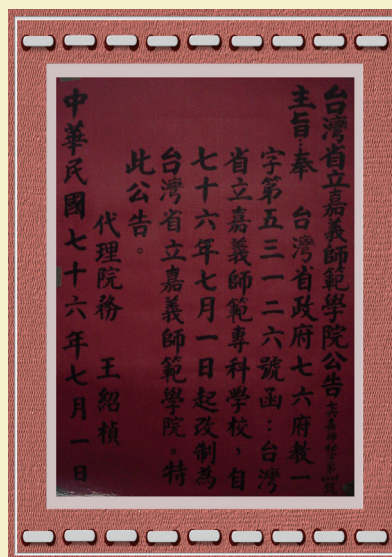 台灣省立嘉義師範學院公告
主旨：奉　台灣省政府七六府教一
字第五三一二六號函：台灣
省立嘉義師範專科學校，自
七十六年七月一日起改制為
台灣省立嘉義師範學院。特
此公告。
代理院務　王紹楨
中華民國七十六年七月一日